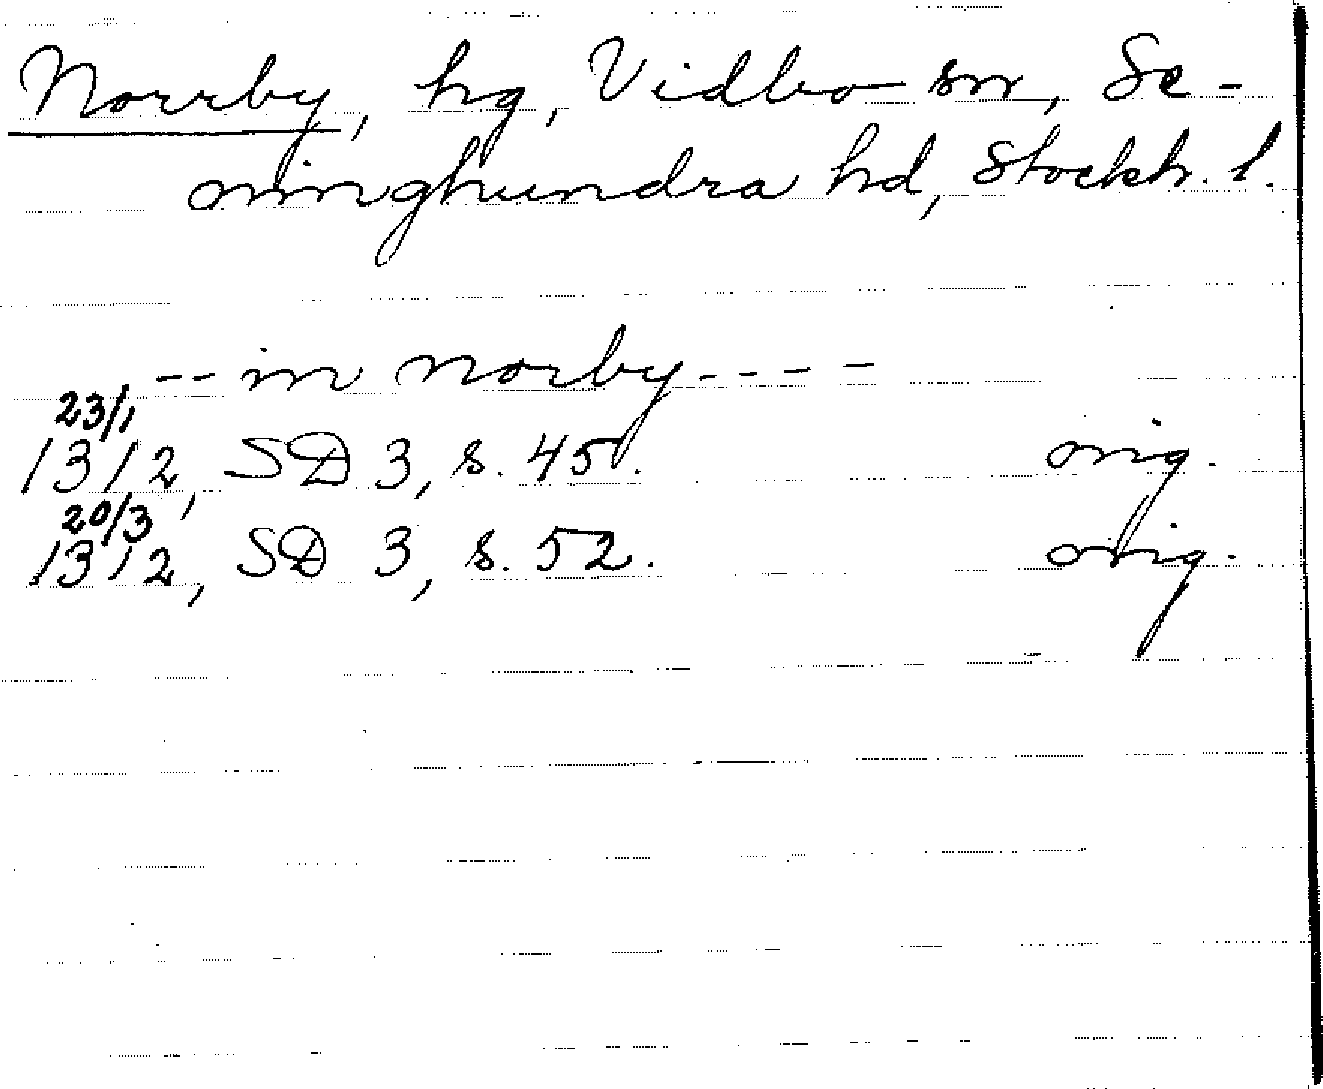 Norrby, hg, Vidbo sn, Se-
minghundra hd, Stockh. l.
-- in norby----
23/1
1312, SD 3, s. 45. orig.
20/3
1312, SD 3, s. 52. orig.